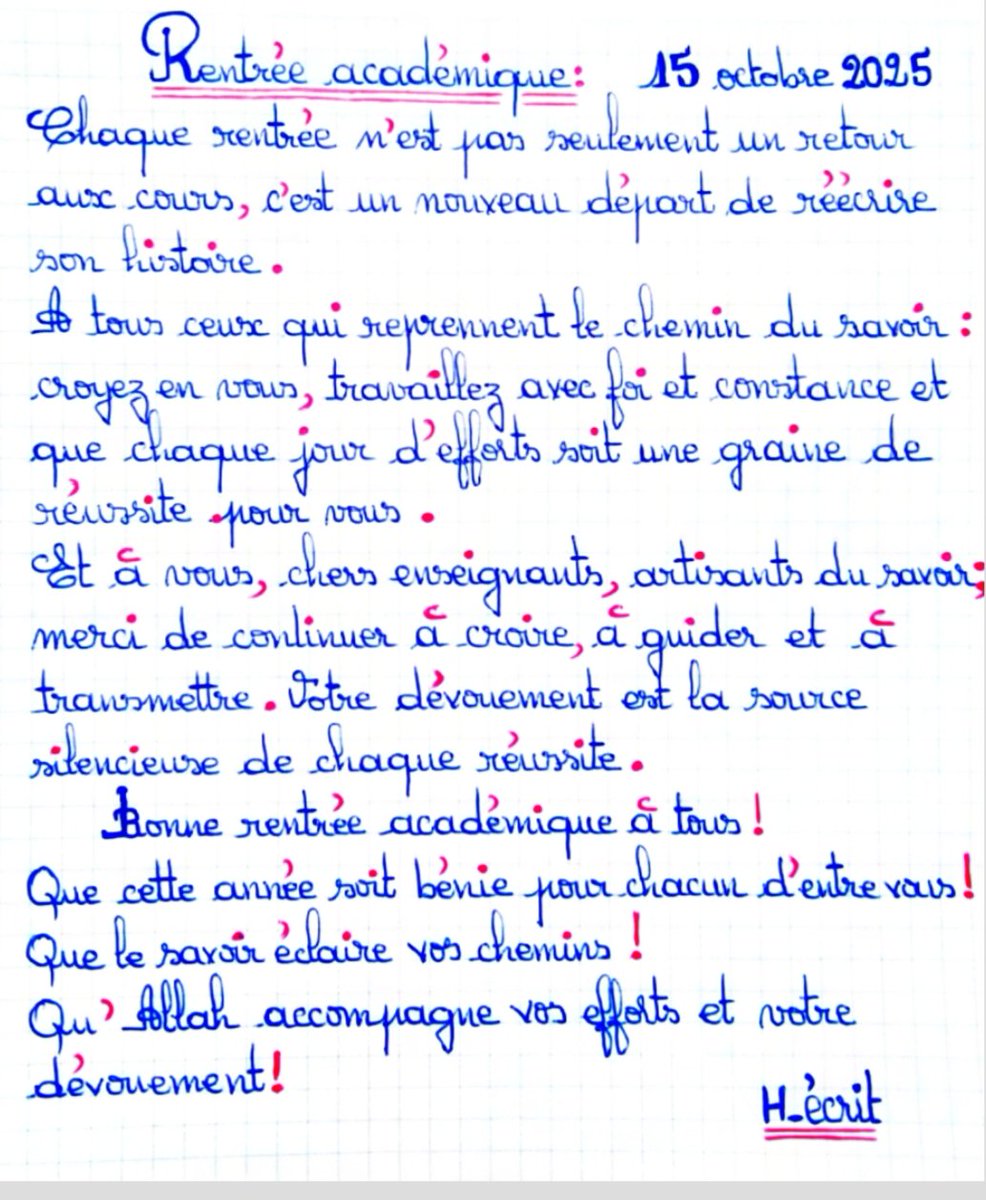 Rentrée académique: 15 octobre 2025
Chaque rentrée n'est pas seulement un retour
aux cours, c'est un nouveau départ de réécrire
son histoire.
A tous ceux qui reprennent le chemin du savoir :
croyez en vous, travaillez avec foi et constance et
que chaque jour d'efforts soit une graine de
réussite pour vous.
Et à vous, chers enseignants, artisants du savoir;
merci de continuer à croire, à guider et à
transmettre. Votre dévouement est la source
silencieuse de chaque réussite.
Bonne rentrée académique à tous !
Que cette année soit bénie pour chacun d'entre vous !
Que le savoir éclaire vos chemins !
Qu'Allah accompagne vos efforts et votre
dévouement!
H-écrit